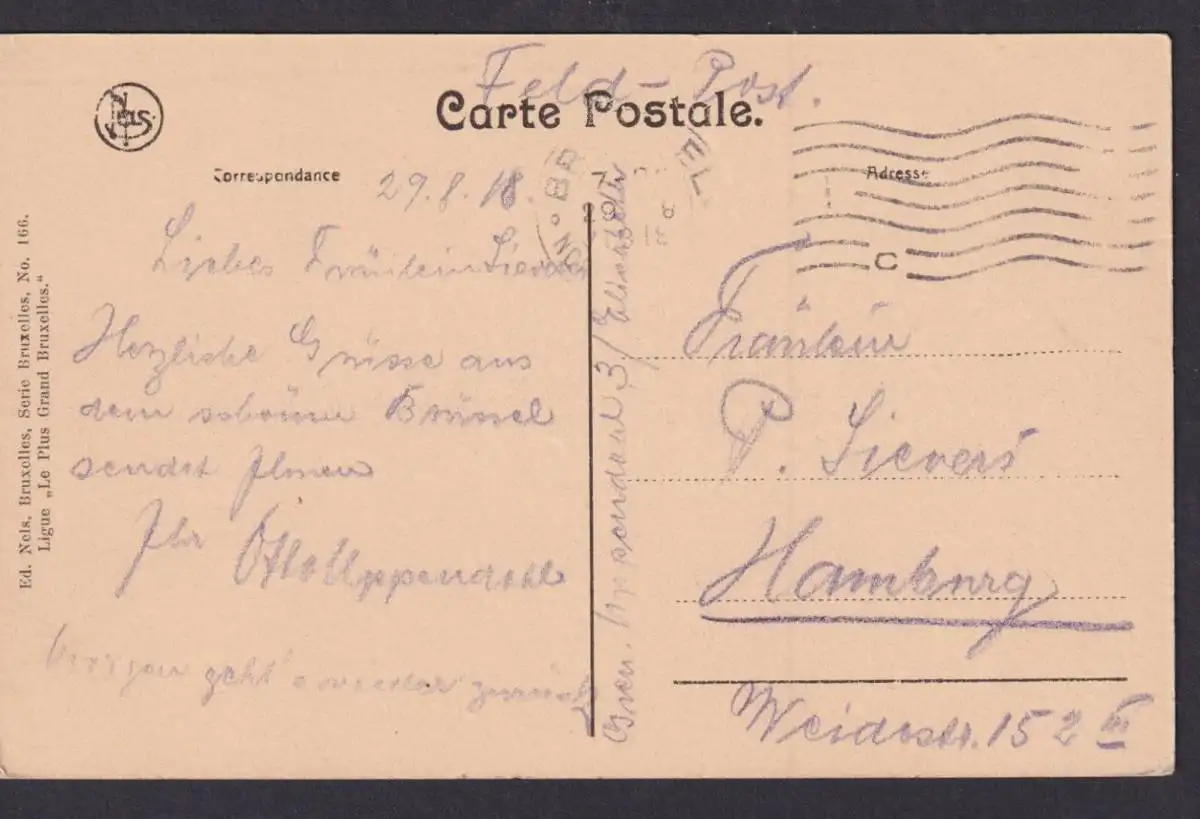 Feld-Post.
Nels.
Carte Postale.
Correspondance
Adresse
29.8.18.
Liebes Fräulein Sievers
Herzliche Grüsse aus
dem schönen Brüssel
sendet Ihnen
Ihr Otto Uppendahl
Morgen geht's wieder zurück
Fräulein
P. Sievers
Hamburg
Weidestr. 152 III
Uppendahl 3/
C
Ed. Nels, Bruxelles, Serie Bruxelles, No. 166.
Ligue „Le Plus Grand Bruxelles."